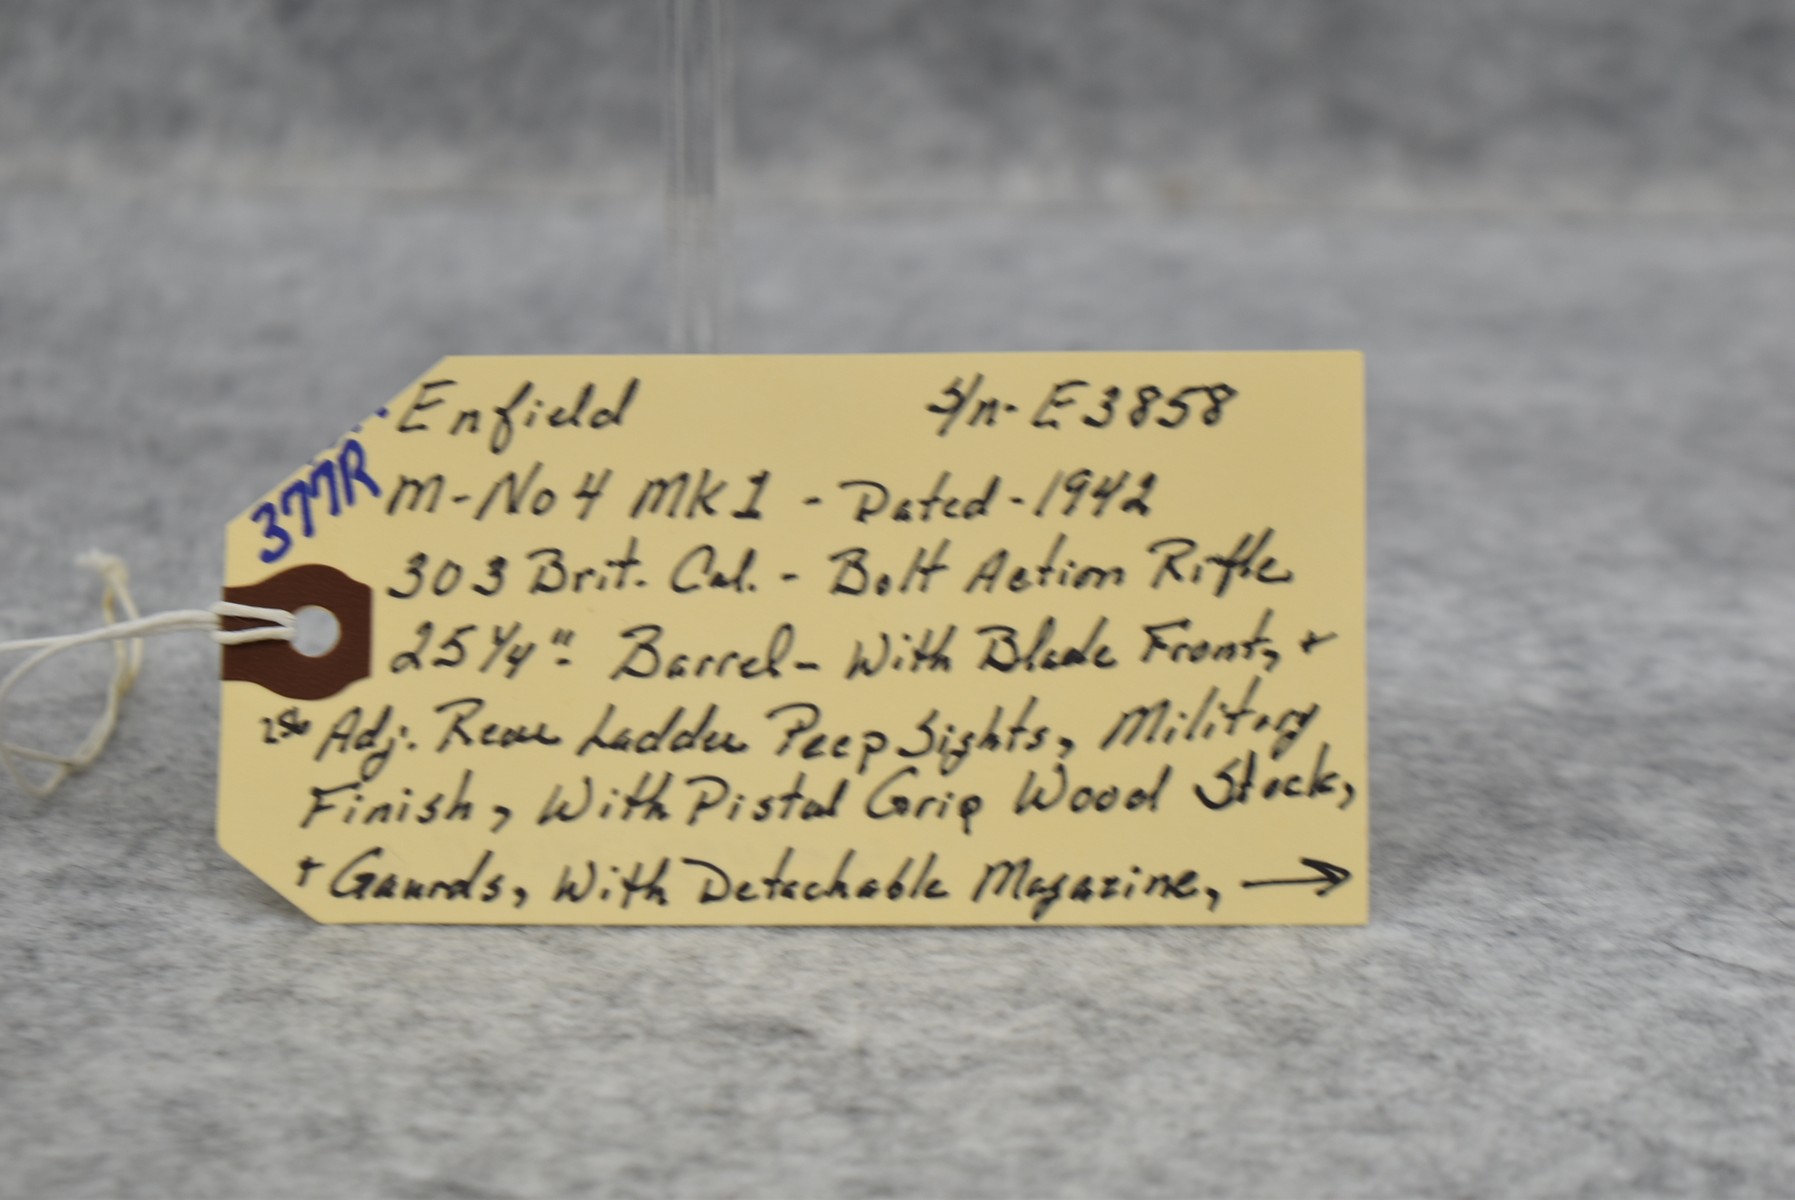 Enfield S/n- E3858
377R
M-No 4 MK1 - Dated-1942
303 Brit. Cal. - Bolt Action Rifle
25 1/4" Barrel- With Blade Front, +
Adj. Rear Ladder Peep Sights, Military
Finish, With Pistol Grip Wood Stock,
+ Gaurds, With Detachable Magazine, →